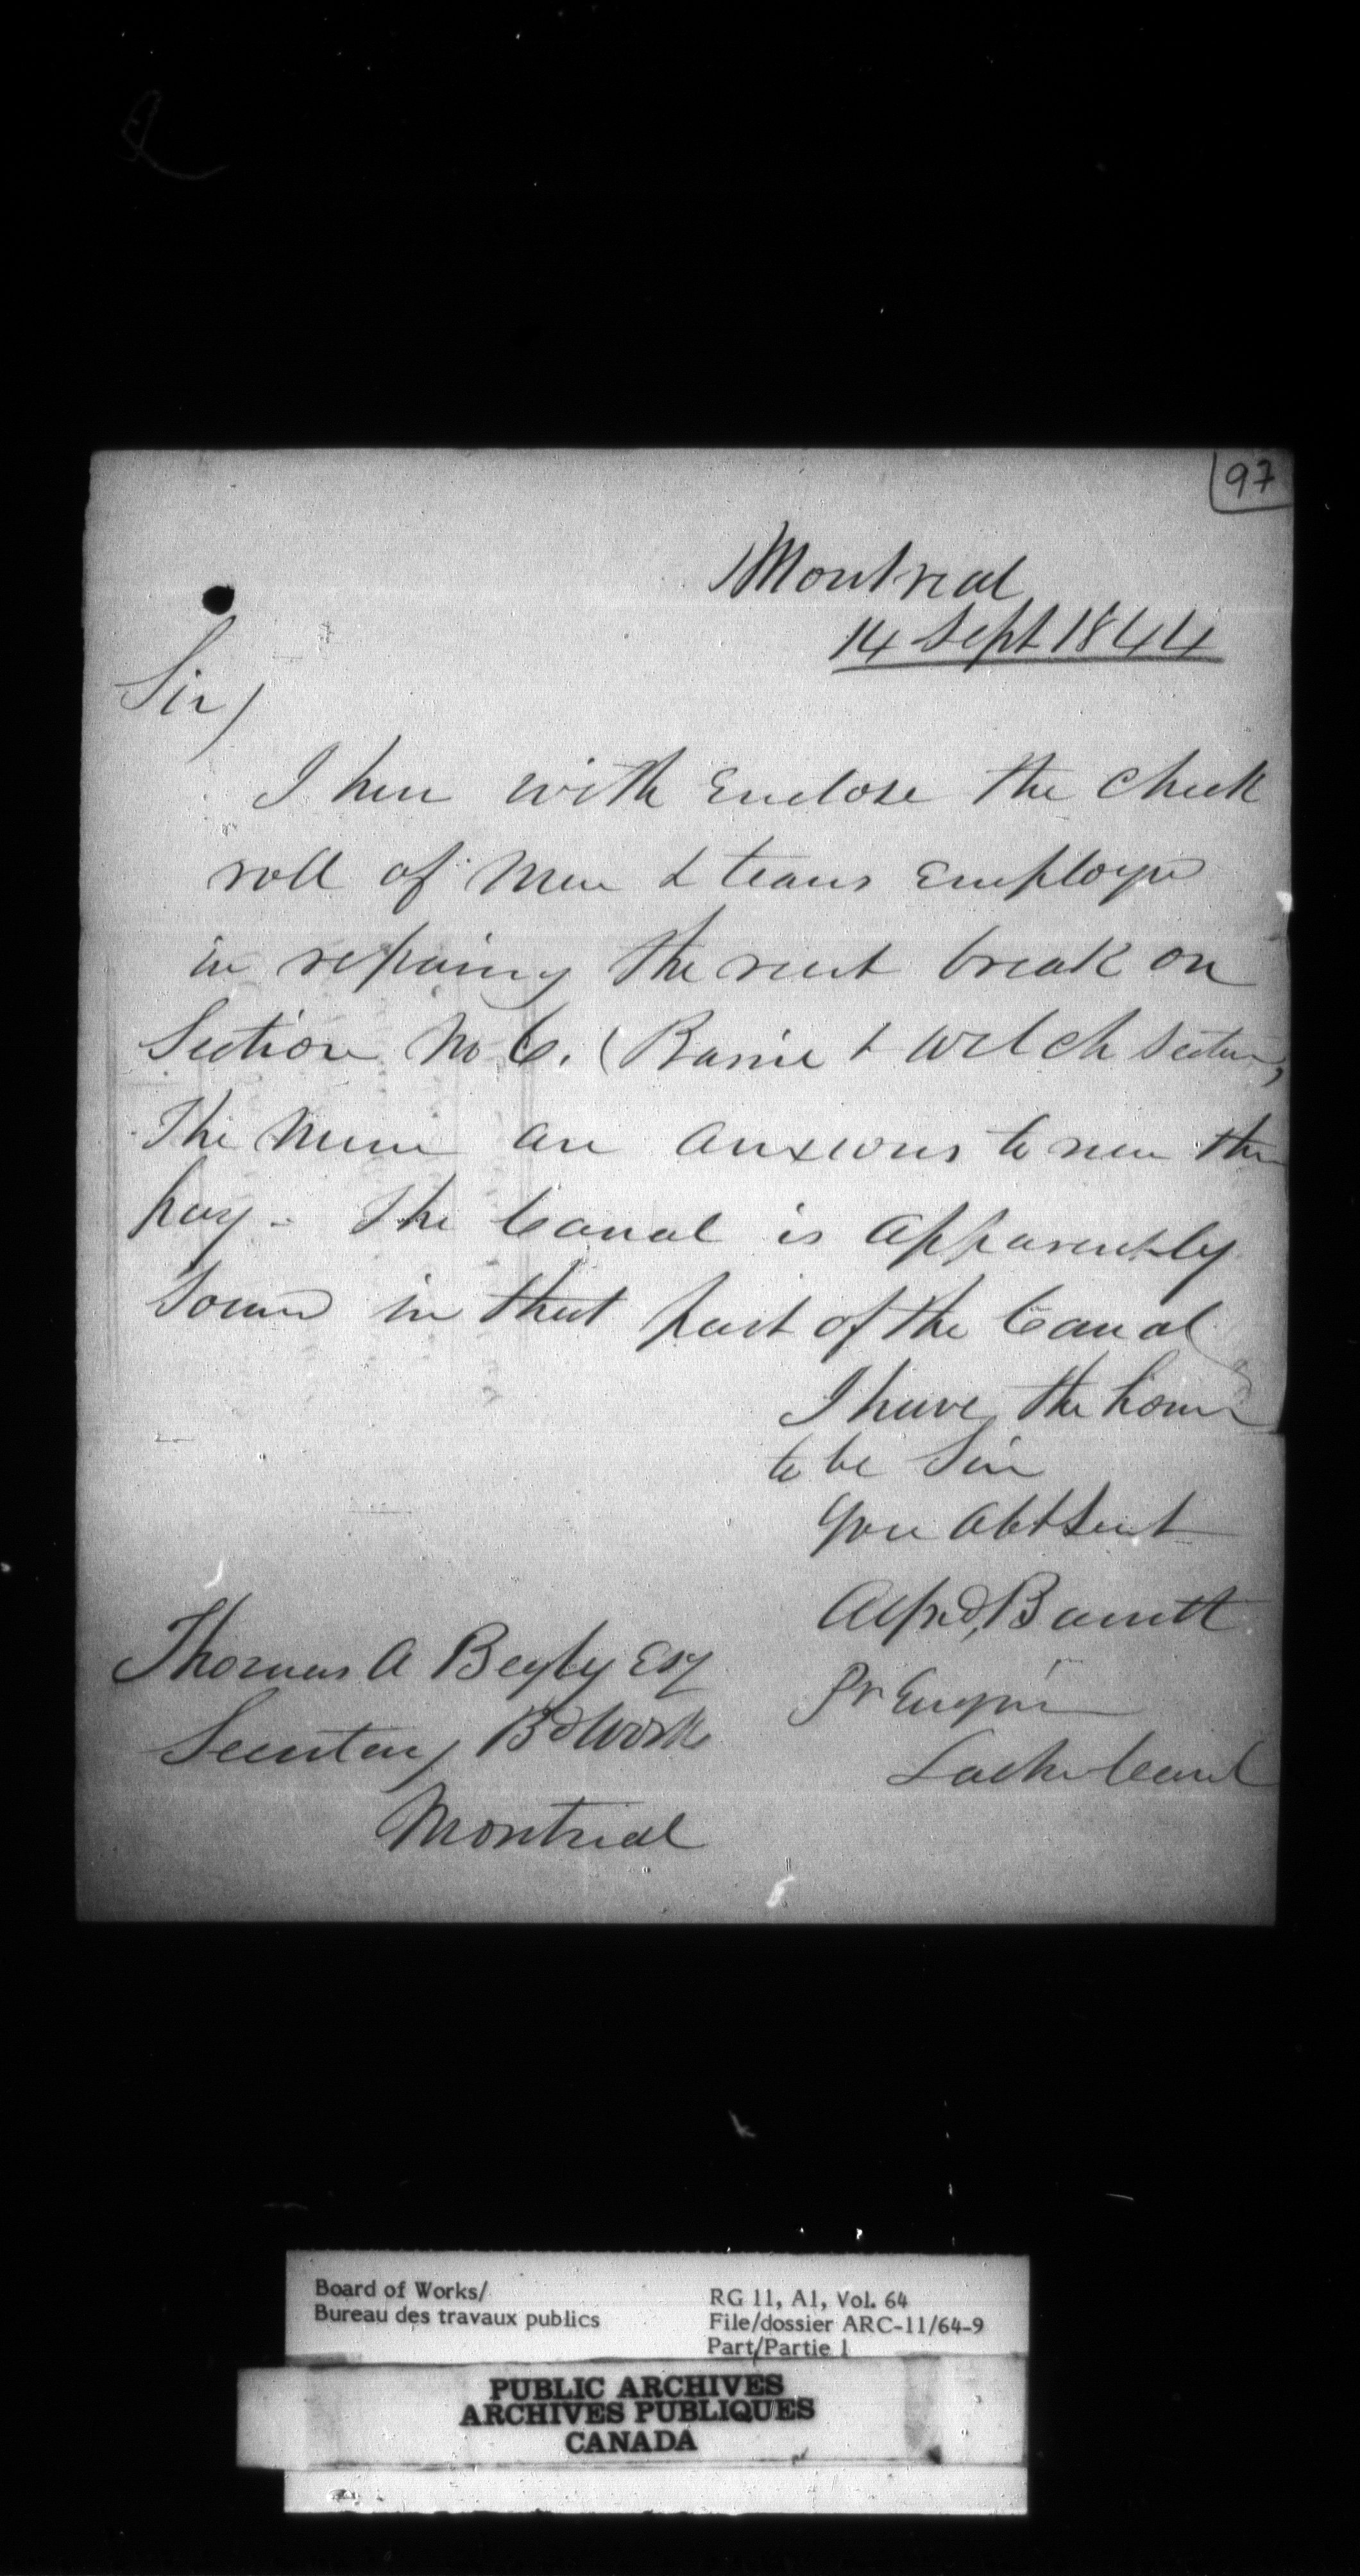 97
Montreal
14 Sept 1844
Sir,
I here with Enclose the Check
roll of Men & teams Employed
in repairing the recent break on
Section No 6. (Barrie & Welch Section,
The Men are anxious to receive their
pay - The Canal is apparently
Sound in that part of the Canal
I have the honor
to be Sir
Your Obt Servt
Alfred Barrett
Engineer
Lachine Canal
Thomas A Begly Esq
Secretary Bd Works
Montreal
Board of Works/
Bureau des travaux publics
RG 11, A1, Vol. 64
File/dossier ARC-11/64-9
Part/Partie 1
PUBLIC ARCHIVES
ARCHIVES PUBLIQUES
CANADA